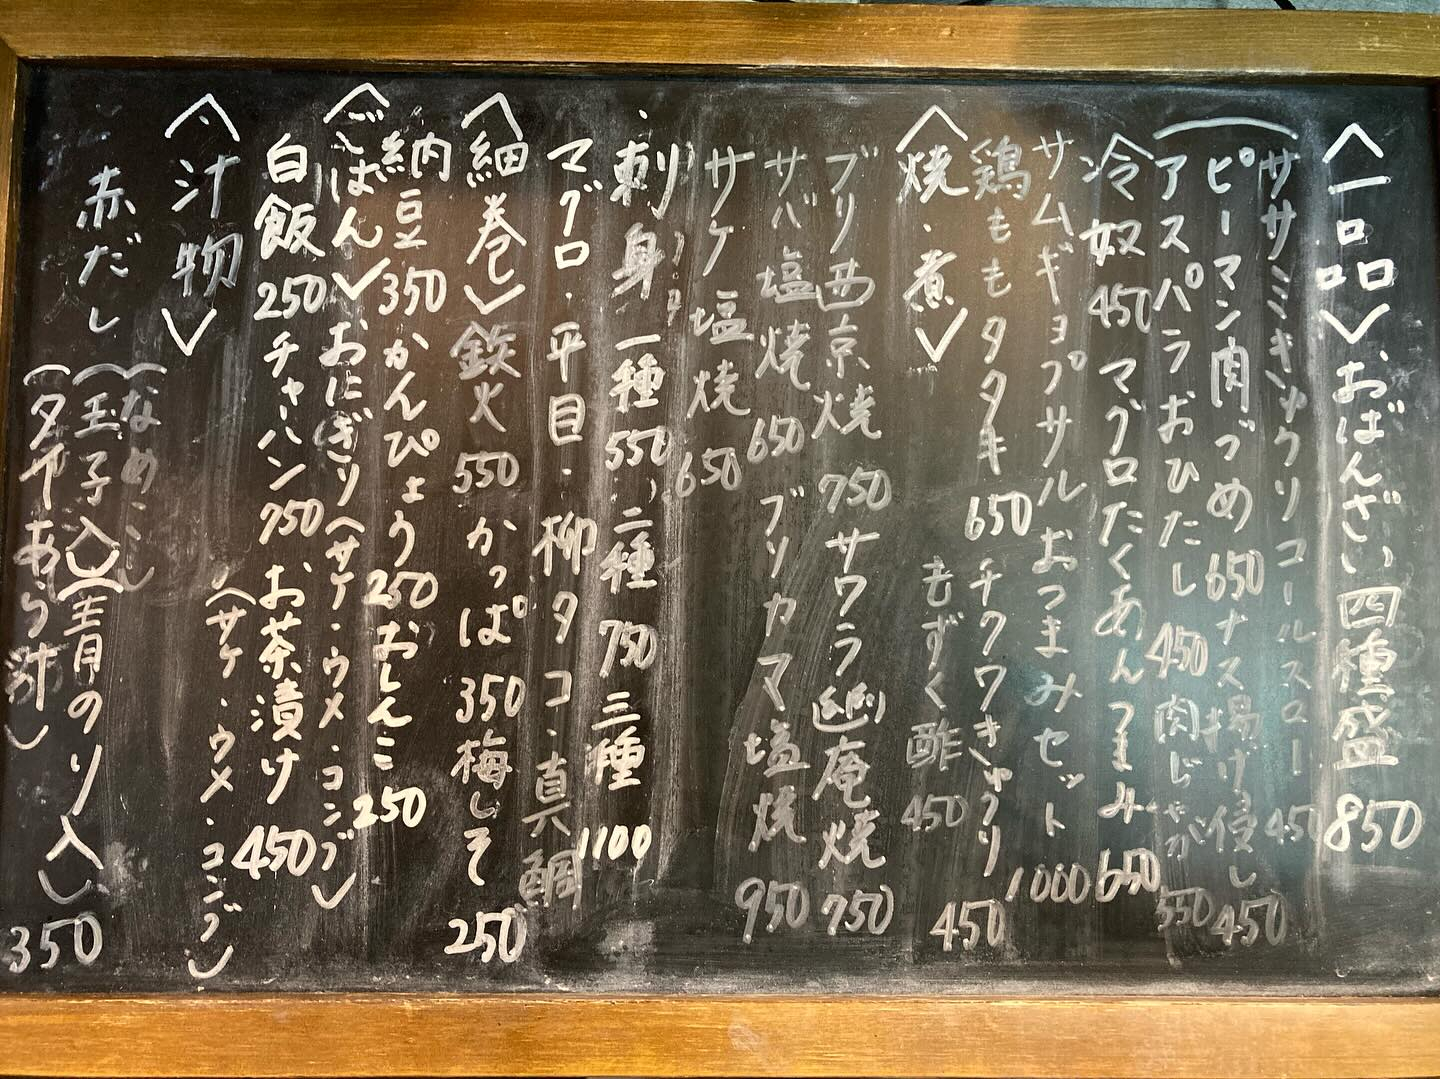 〈一品〉おばんざい四種盛 850
ササミキャクリコールスロー 450
ピーマン肉づめ 650 ナス揚げ浸し 450
アスパラおひたし 450 肉じゃが 550
冷奴 450 マグロたくあんつまみ 650
サムギョプサルおつまみセット 1000
鶏ももタタキ 650 チクワきゅうり 450
〈焼・煮〉 もずく酢 450
ブリ西京焼 750 サワラ幽庵焼 750
サバ塩焼 650 ブリカマ塩焼 950
サケ塩焼 650
刺身 一種 550 二種 750 三種 1100
マグロ・平目・柳タコ・真鯛
〈細巻〉鉄火 550 かっぱ 350 梅しそ 250
納豆 350 かんぴょう 250 おしんこ 250
〈ごはん〉おにぎり(サケ・ウメ・コンブ)
白飯 250 チャーハン 750 お茶漬け 450
(サケ・ウメ・コンブ)
〈汁物〉
赤だし (なめこ
(玉子入)(青のり入)
(タイあら汁) 350